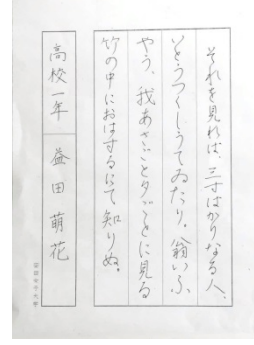 それを見れば、三寸ばかりなる人、
いとうつくしうてゐたり。翁いふ
やう、我あさごと夕ごとに見る
竹の中におはするにて知りぬ。
高校一年 益田萌花